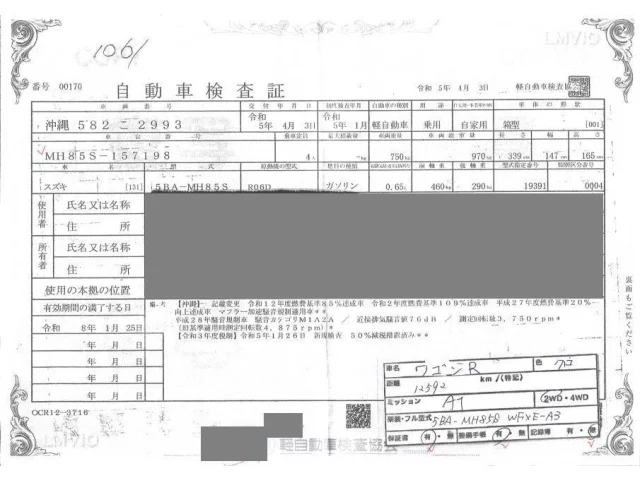 1061
番号 00170
自動車検査証
令和 5年 4月 3日 軽自動車検査協会
車両番号 交付年月日 初度検査年月 自動車の種別 用途 自家用・事業用の別 車体の形状
沖縄 582 こ 2993 令和 5年 4月 3日 令和 5年 1月 軽自動車 乗用 自家用 箱型 [001]
車台番号 乗車定員 最大積載量 車両重量 車両総重量 長さ 幅 高さ
MH85S-157198 4人 -kg 750kg 970kg 339cm 147cm 165cm
車名 型式 原動機の型式 燃料の種類 前軸重 後軸重 型式指定番号 類別区分番号
スズキ [131] 5BA-MH85S R06D ガソリン 0.65L 460kg 290kg 19391 0004
使用者 氏名又は名称
住所
所有者 氏名又は名称
住所
使用の本拠の位置
有効期間の満了する日
令和 8年 1月 25日
年 月 日
年 月 日
年 月 日
年 月 日
備考 【沖縄】 記載変更 令和12年度燃費基準85%達成車 令和2年度燃費基準109%達成車 平成27年度燃費基準20%
向上達成車 マフラー加速騒音規制適用車**
平成28年騒音規制車 騒音カテゴリM1A2A / 近接排気騒音値76dB / 測定回転数3,750rpm**
(旧基準適用時測定回転数4,875rpm)**
【令和3年度税制】令和5年1月26日 新規検査 50%減税措置済み**
裏面もご覧ください
OCR12-3716
軽自動車検査協会
LMVIO
LMVIO
車名 ワゴンR 色 クロ
距離 12592 km/(特記)
ミッション AT 2WD・4WD
架装・フル型式 5BA-MH85S WFXE-A3
保証書 有・無 整備手帳 有・無 記録簿 有・無